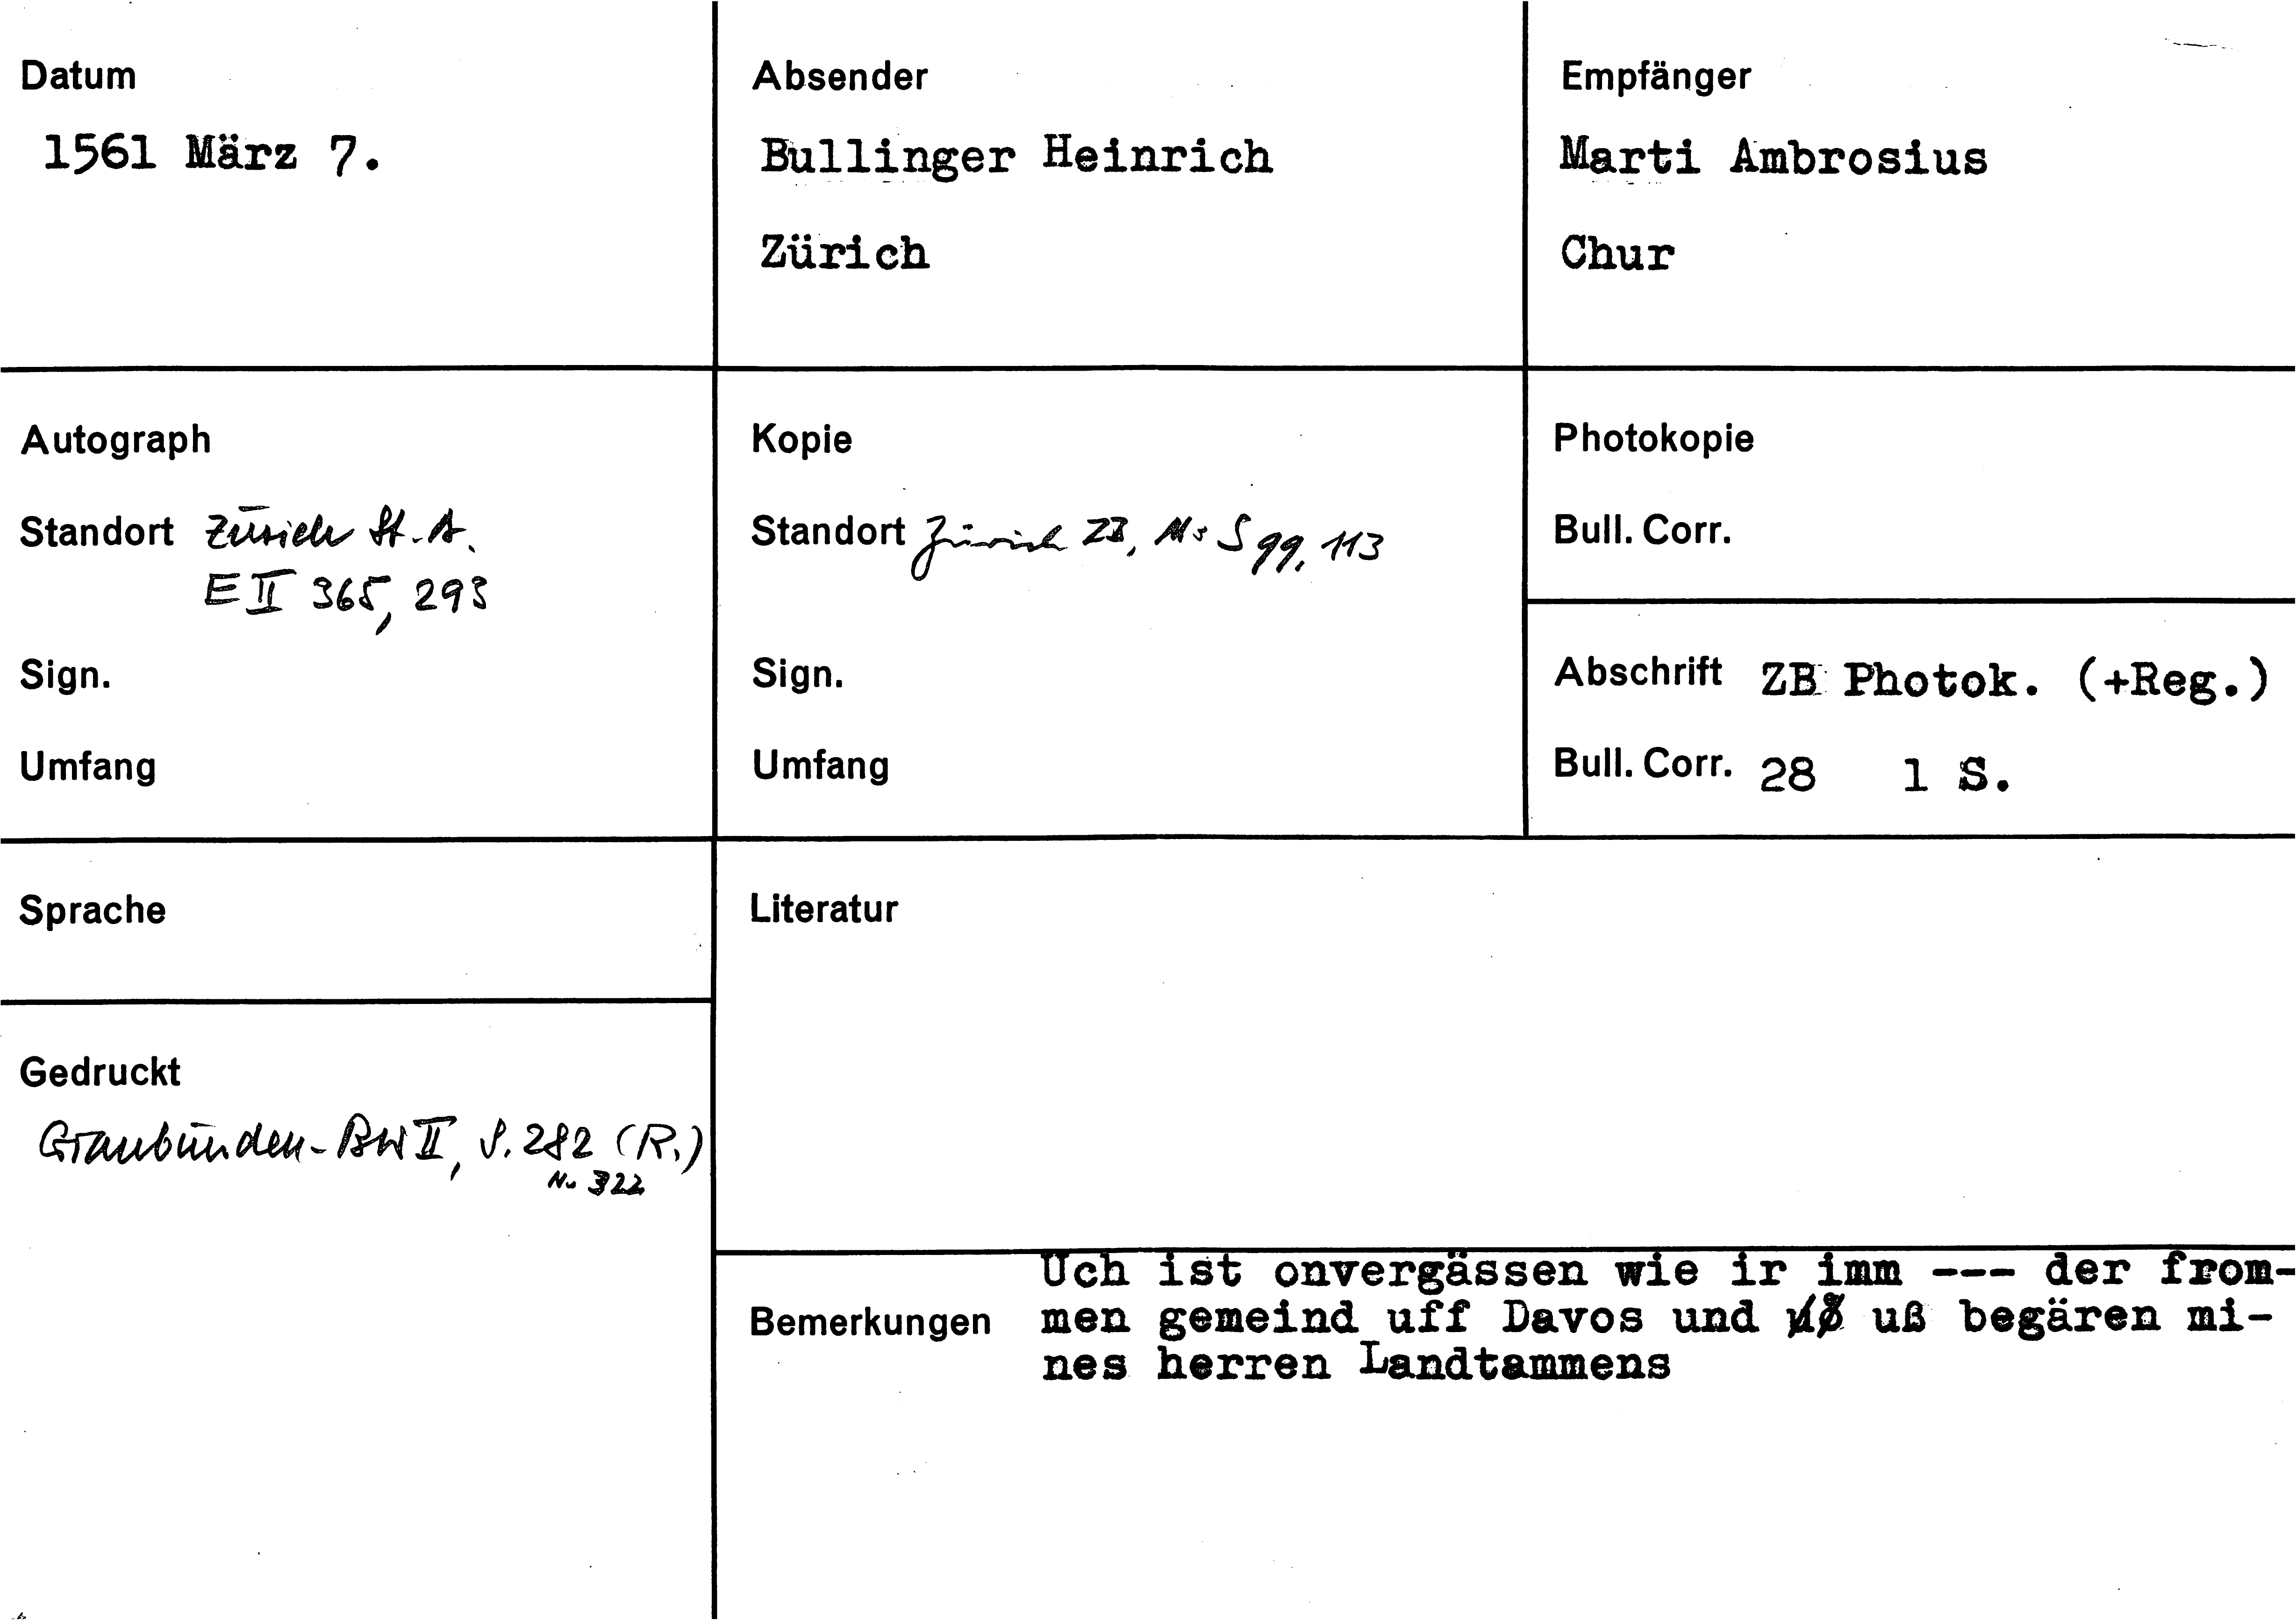 Datum
1561 März 7.
Absender
Bullinger Heinrich
Zürich
Empfänger
Marti Ambrosius
Chur
Autograph
Standort Zürich St. A.
E II 365, 293
Sign.
Umfang
Kopie
Standort Zürich ZB, Ms S 99, 113
Sign.
Umfang
Photokopie
Bull. Corr.
Abschrift ZB Photok. (+Reg.)
Bull. Corr. 28 1 S.
Sprache
Gedruckt
Graubünden-BW II, S. 282 (R.)
No 322
Literatur
Bemerkungen
Uch ist onvergässen wie ir imm --- der from-
men gemeind uff Davos und uß begären mi-
nes herren Landtammens